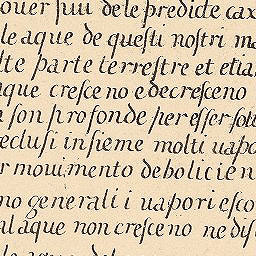 ouer ſuu dele predicte cax
le aque de queſti noſtri ma
lte parte terreſtre et etia
aque creſce no e decreſceno
n ſon profonde per eſſer ſott
recluſi inſieme molti uapo
r mouimento debolicien
no generati i uapori eſco
al aque non creſceno ne diſ